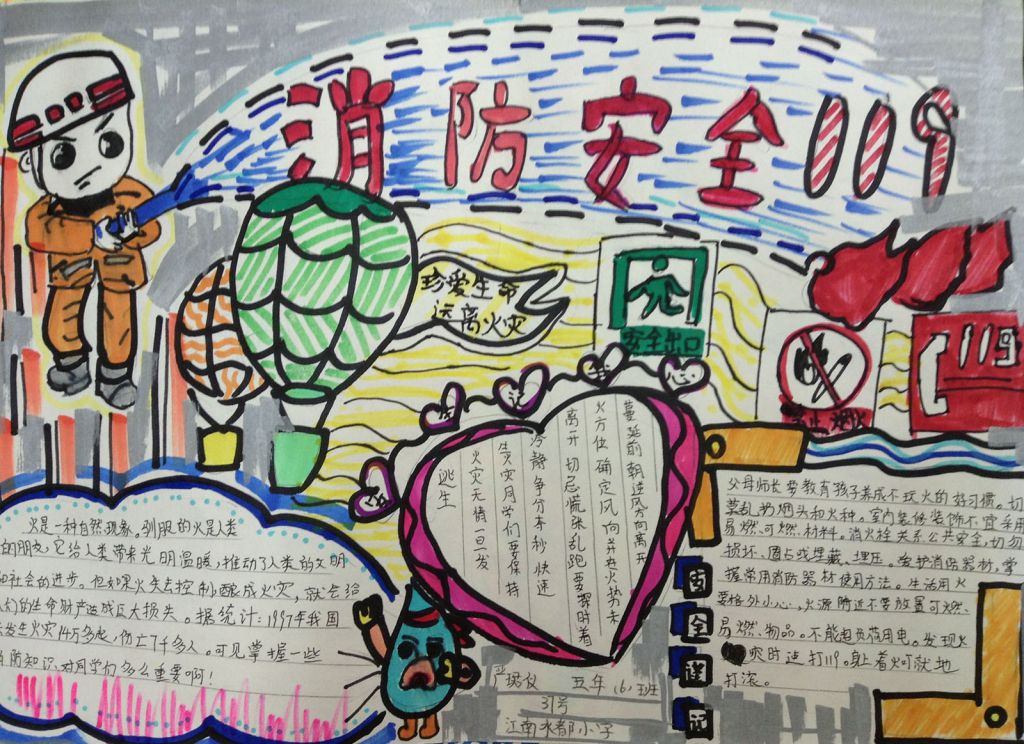 消防安全119
珍爱生命
远离火灾
安全出口
禁止烟火
119
火是一种自然现象。驯服的火是人类
的朋友，它给人类带来光明温暖，推动了人类的文明
和社会的进步。但如果火失去控制，酿成火灾，就会给
人们的生命财产造成巨大损失。据统计：1997年我国
发生火灾14万多起，伤亡7千多人。可见掌握一些
消防知识，对同学们多么重要啊！
逃生
火灾无情一旦发
灾同学们要保持
冷静争分夺秒快速
离开切忌慌张乱跑要探时着
火方位确定风向并在火势未
蔓延前朝逆风向离开
父母师长要教育孩子养成不玩火的好习惯。切
莫乱扔烟头和火种。室内装修装饰不宜采用
易燃可燃材料。消火栓关系公共安全，切勿
损坏、圈占或埋压。爱护消防器材，掌
握常用消防器材使用方法。生活用火
要格外小心，火源附近不要放置可燃、
易燃物品。不能超负荷用电。发现火
灾时速打119。身上着火可就地
打滚。
全
记
五年（6）班
37号
江南水都小学